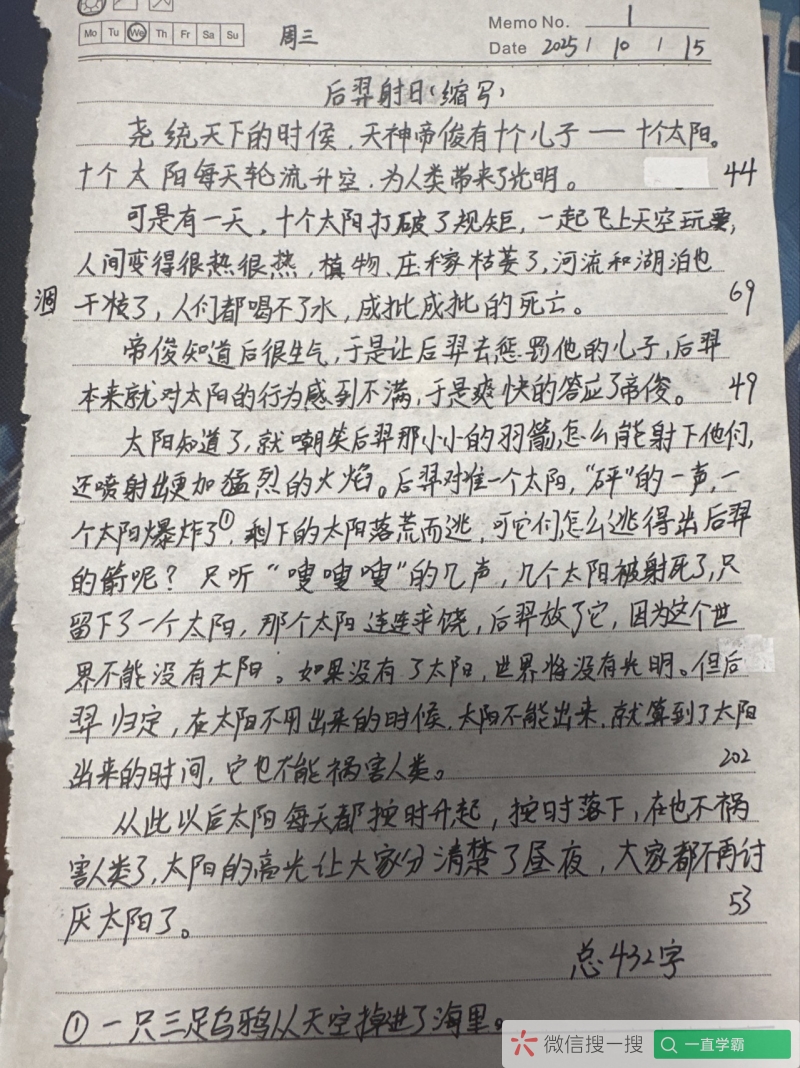 Mo Tu We Th Fr Sa Su
周三
Memo No. 1
Date 2025 / 10 / 15
后羿射日(缩写)
尧统天下的时候,天神帝俊有十个儿子——十个太阳。
十个太阳每天轮流升空,为人类带来了光明。 44
可是有一天,十个太阳打破了规矩,一起飞上天空玩耍,
人间变得很热很热,植物、庄稼枯萎了,河流和湖泊也
涸 干枝了,人们都喝不了水,成批成批的死亡。 69
帝俊知道后很生气,于是让后羿去惩罚他的儿子,后羿
本来就对太阳的行为感到不满,于是爽快的答应了帝俊。 49
太阳知道了,就嘲笑后羿那小小的羽箭,怎么能射下他们,
还喷射出更加猛烈的火焰。后羿对准一个太阳,“砰”的一声,一
个太阳爆炸了①,剩下的太阳落荒而逃,可它们怎么逃得出后羿
的箭呢?只听“嗖嗖嗖”的几声,几个太阳被射死了,只
留下了一个太阳,那个太阳连连求饶,后羿放了它,因为这个世
界不能没有太阳。如果没有了太阳,世界将没有光明。但后
羿归定,在太阳不用出来的时候,太阳不能出来,就算到了太阳
出来的时间,它也不能祸害人类。 202
从此以后太阳每天都按时升起,按时落下,在也不祸
害人类了,太阳的高光让大家分清楚了昼夜,大家都不再讨
厌太阳了。 53
总432字
①一只三足乌鸦从天空掉进了海里。
微信搜一搜 一直学霸